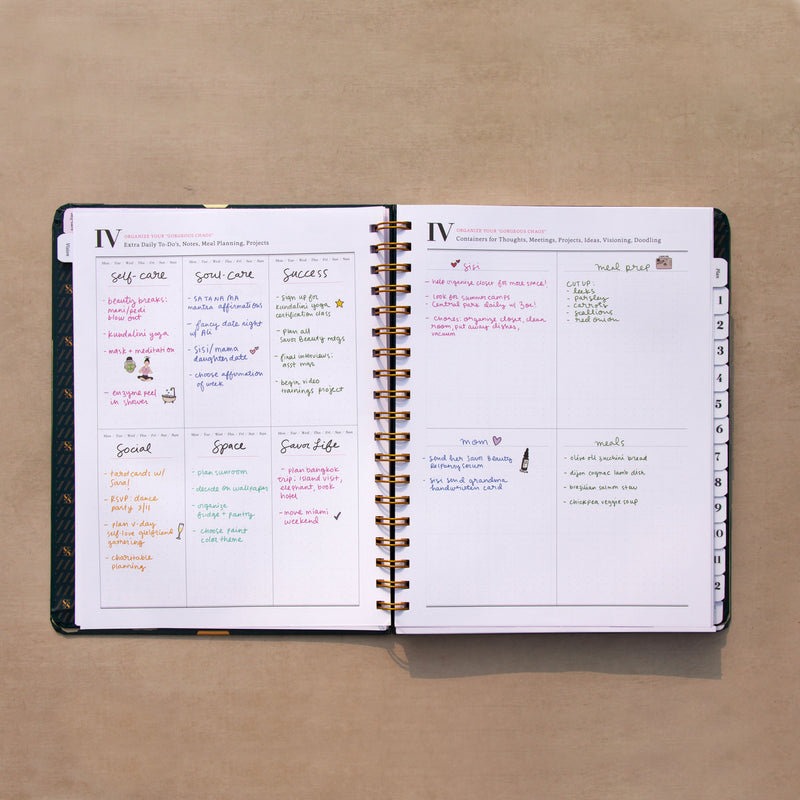 IV
ORGANIZE YOUR "GORGEOUS CHAOS"
Extra Daily To-Do's, Notes, Meal Planning, Projects
Mon Tue Wed Thu Fri Sat Sun
Self-care
- beauty breaks:
mani/pedi
blow out
- kundalini yoga
- mask + meditation
- enzyme peel
in shower
Mon Tue Wed Thu Fri Sat Sun
Soul-care
- SA TA NA MA
mantra affirmations
- fancy date night
w/ Ali
- Sisi/mama
daughter date
- choose affirmation
of week
Mon Tue Wed Thu Fri Sat Sun
Success
- Sign up for
kundalini yoga
certification class
- plan all
Savor Beauty mtgs
- final interviews:
asst mgs
- begin video
trainings project
Mon Tue Wed Thu Fri Sat Sun
Social
- tarot cards w/
Sara!
- RSVP: dance
party 3/11
- plan v-day
self-love girlfriend
gathering
- charitable
planning
Mon Tue Wed Thu Fri Sat Sun
Space
- plan sunroom
- decide on wallpaper
- organize
fridge + pantry
- choose paint
color theme
Mon Tue Wed Thu Fri Sat Sun
Savor Life
- plan bangkok
trip: island visit,
elephant, book
hotel
- movie miami
weekend
IV
ORGANIZE YOUR "GORGEOUS CHAOS"
Containers for Thoughts, Meetings, Projects, Ideas, Visioning, Doodling
Sisi
- help organize closet for more space!
- look for summer camps
- Central park daily w/ Zoe!
- Chores: organize closet, clean
room, put away dishes,
vacuum
meal prep
CUT UP:
- leeks
- parsley
- carrots
- scallions
- red onion
mom
- Send her Savor Beauty
Rosemary serum
- Sisi send grandma
handwritten card
meals
- olive oil zucchini bread
- dijon cognac lamb dish
- brazilian salmon stew
- chickpea veggie soup
Plan
1
2
3
4
5
6
7
8
9
10
11
2